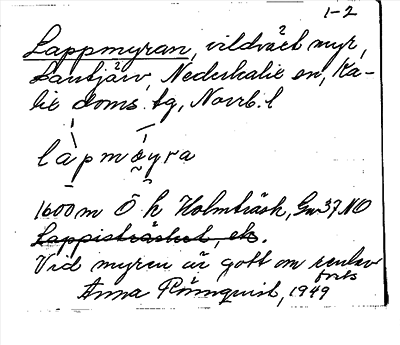 1-2
Lappmyran, vildväxt myr,
Lantjärv, Nederkalix sn, Ka-
lix doms. tg, Norrb. l
làpmy̰ra
1600 m Ö h Holmträsk, Gm 37 NO
Lappisträsket, ek.
Vid myren är gott om renlav
Anna Rönnquist, 1949